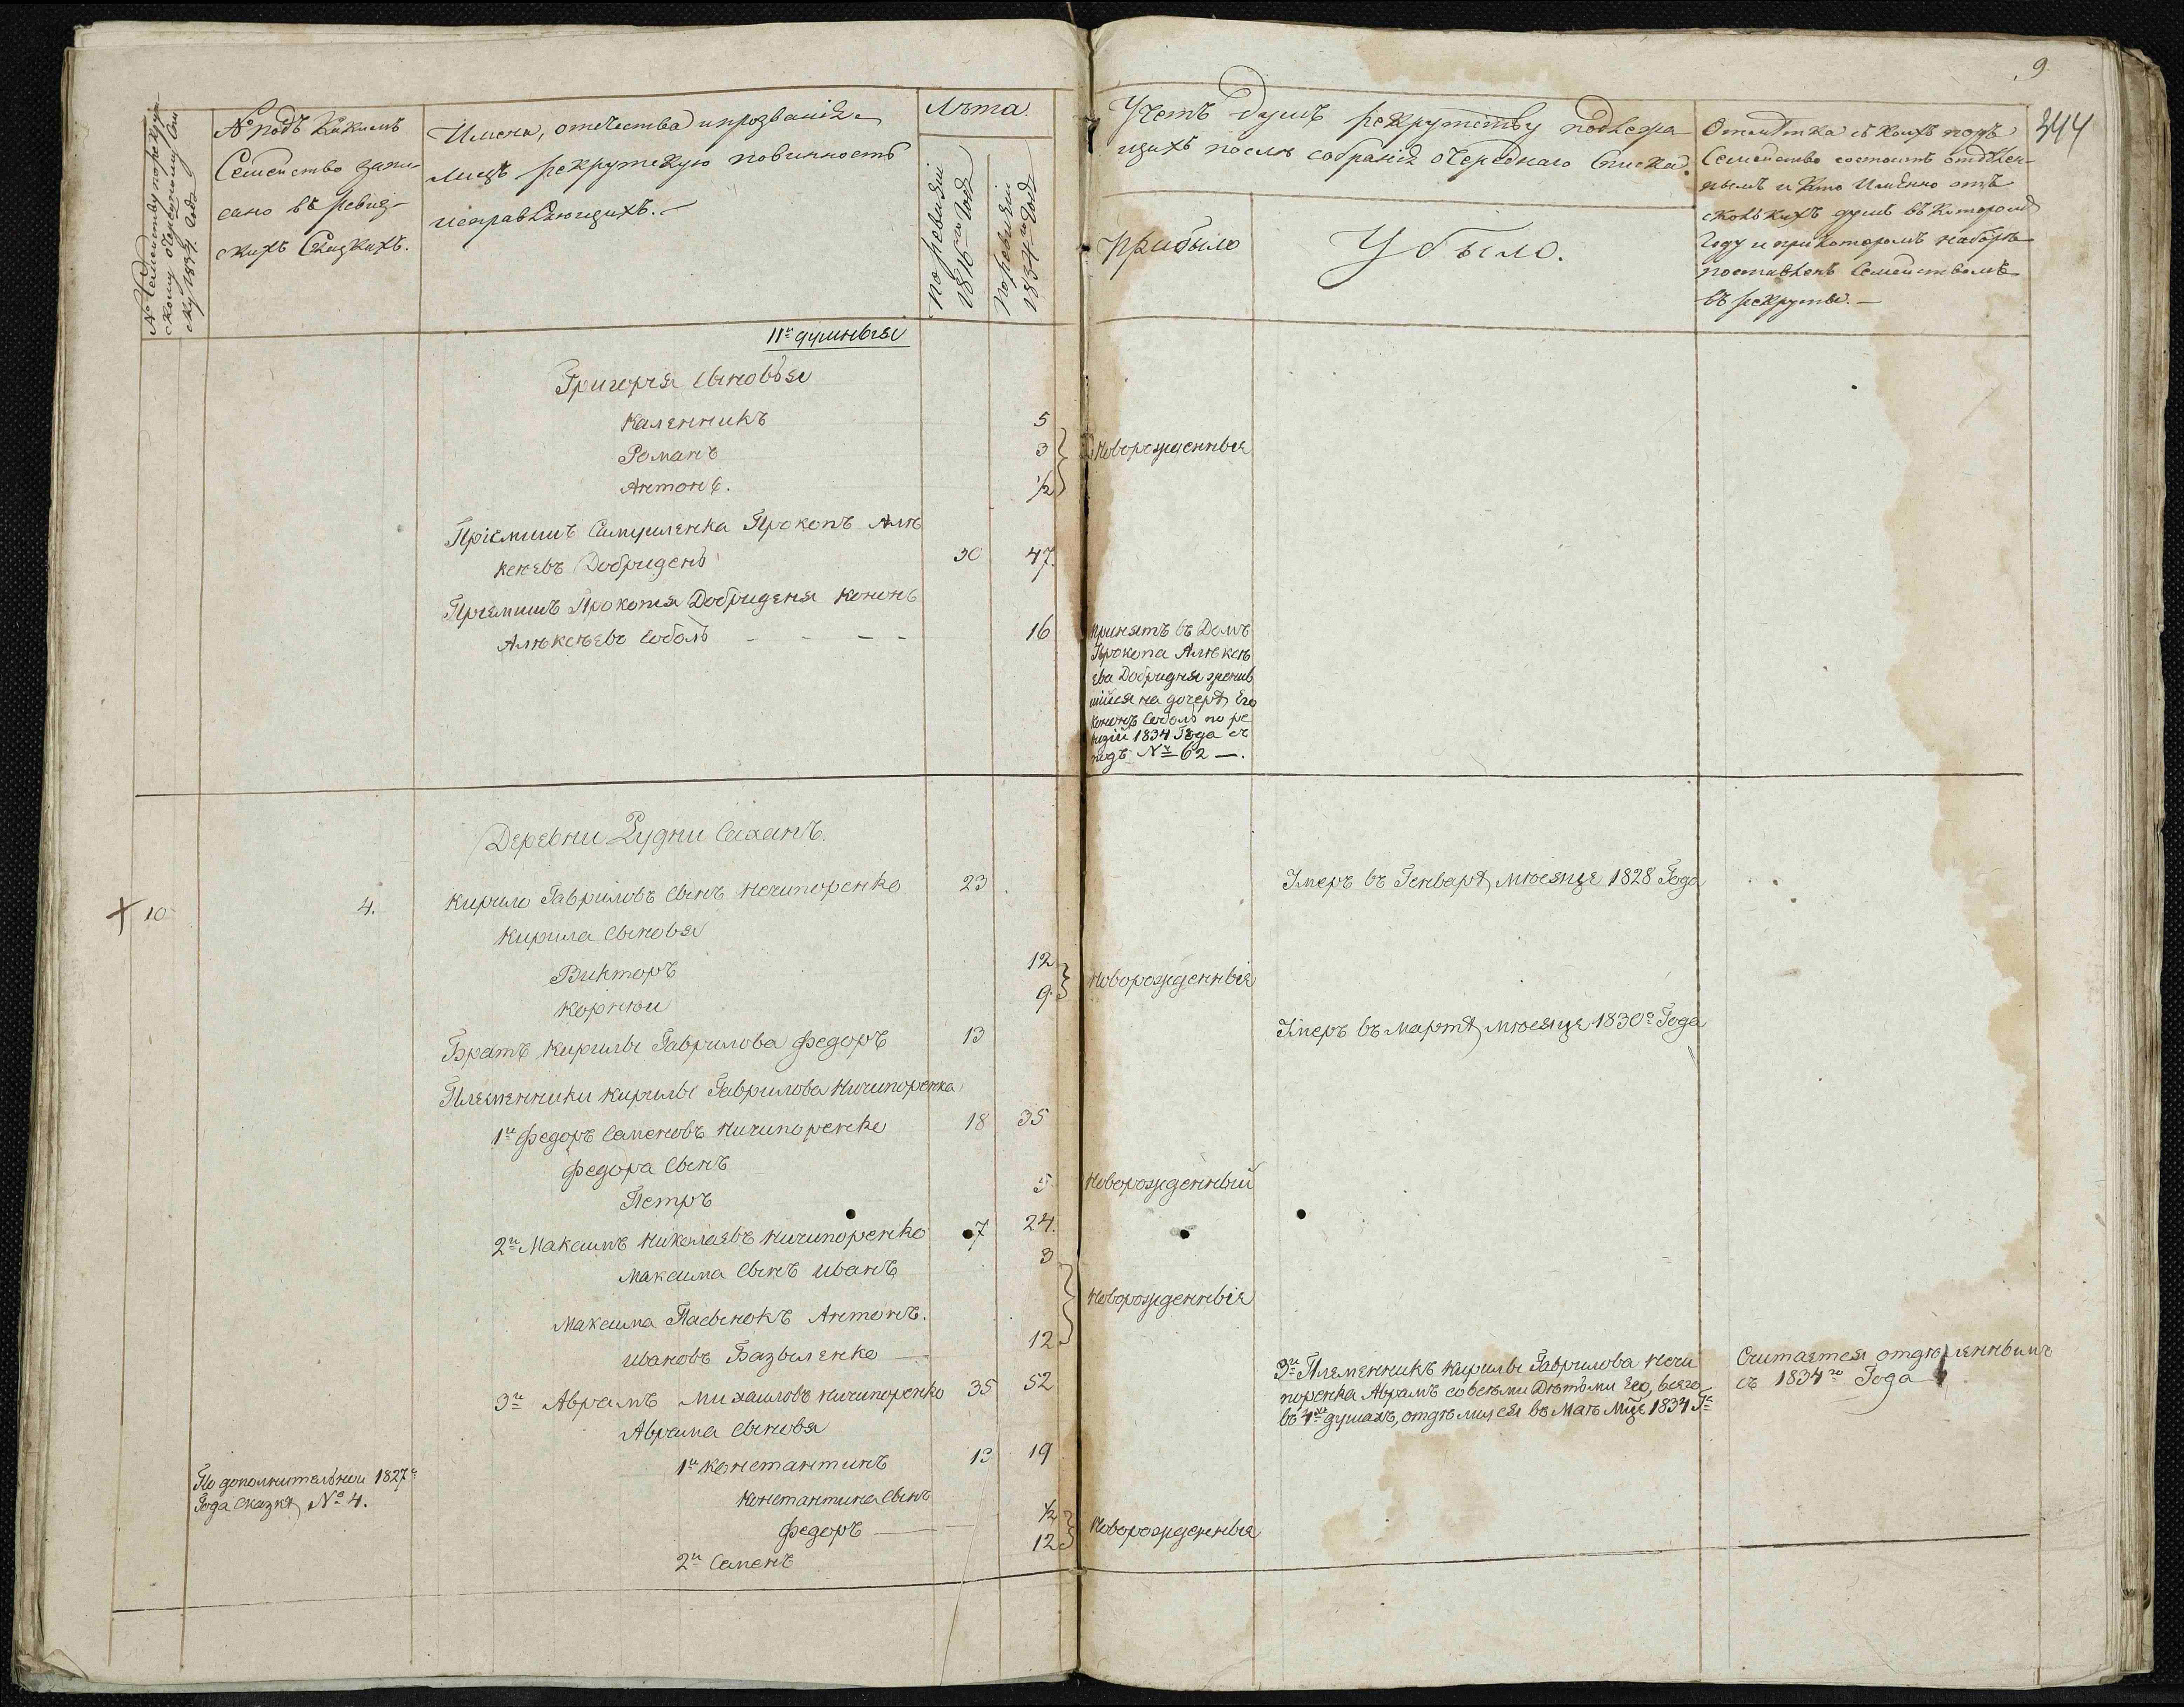 9
344
№ Семейству по рекрут-
скому очередному Спи-
ску 1834 Года
№ подъ Какимъ
Семейство запи-
сано въ ревиз-
скихъ Сказкахъ.
Имена, отечества и прозванія
лицъ рекрутскую повинность
исправляющихъ.—
Лѣта.
по ревизіи
1816го Года
по ревизіи
1834го Года
Учетъ душъ рекрутству подлежа
щихъ послѣ собранія очереднаго Списка.
Прибыло
Убыло.
Отмѣтка съ коихъ поръ
Семейство состоитъ отдѣлен-
нымъ и Кто Имѣнно отъ
сколькихъ душъ въ Которомъ
Году и при Которомъ наборѣ
поставленъ Семействомъ
въ рекруты.—
11и душныя
Григорія Сыновья
Каленникъ 5
Романъ 3 Новорожденныя
Антонъ. 1/2
Пріемишъ Самуиленка Прокопъ Алѣ
ксѣевъ Добридень 30 47.
Пріемишъ Прокопія Добриденя Кононъ
Алѣксѣевъ Соболь - - - - 16
принятъ въ Домъ
Прокопа Алѣксѣ
ева Добридня женив
шійся на дочерѣ Его
Кононъ Соболь по ре
визіи 1834 Года съ
подъ № 62 —.
Деревни Рудни Саханъ.
10 4. Кирило Гавриловъ Сынъ Ничипоренко 23 Умеръ въ Генварѣ мѣсяце 1828 Года
Кирила Сыновя
Викторъ 12 Новорожденныя
Корнюи 9
Братъ Кирилы Гаврилова Федоръ 13 Умеръ въ мартѣ мѣсяце 1830го Года
Племенники Кирилы Гаврилова Ничипоренка
1й Федоръ Семеновъ Ничипоренко 18 35
Федора Сынъ
Петръ 5 Новорожденный
2й Максимъ Николаевъ Ничипоренко 7 24.
Максима Сынъ Иванъ 3
Новорожденныя
Максима Пасынокъ Антонъ.
Ивановъ Базыленко — 12
3й Аврамъ Михаиловъ Ничипоренко 35 52
3й Племенникъ Кирилы Гаврилова Ничи
поренка Аврамъ совсѣми Дѣтьми Его, всего
въ 4хъ душахъ, отдѣлился въ Маѣ Мцѣ 1834 Гο
Считается отдѣленнымъ
съ 1834го Года
Аврама Сыновя
По дополнительной 1827го
Года Сказкѣ № 4.
1й Константинъ 13 19
Константина Сынъ
Федоръ — 1/2 Новорожденныя
2й Семенъ 12